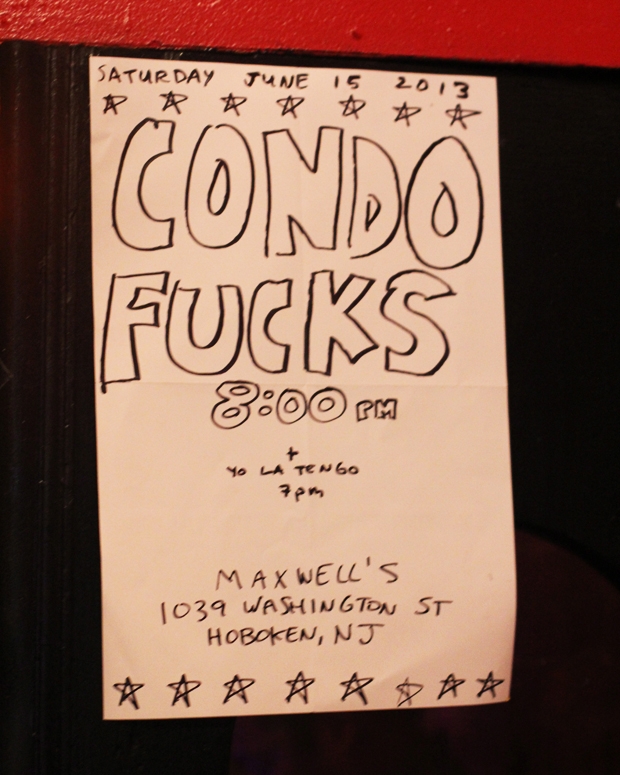 SATURDAY JUNE 15 2013
CONDO
FUCKS
8:00 PM
+
YO LA TENGO
7pm
MAXWELL'S
1039 WASHINGTON ST
HOBOKEN, NJ